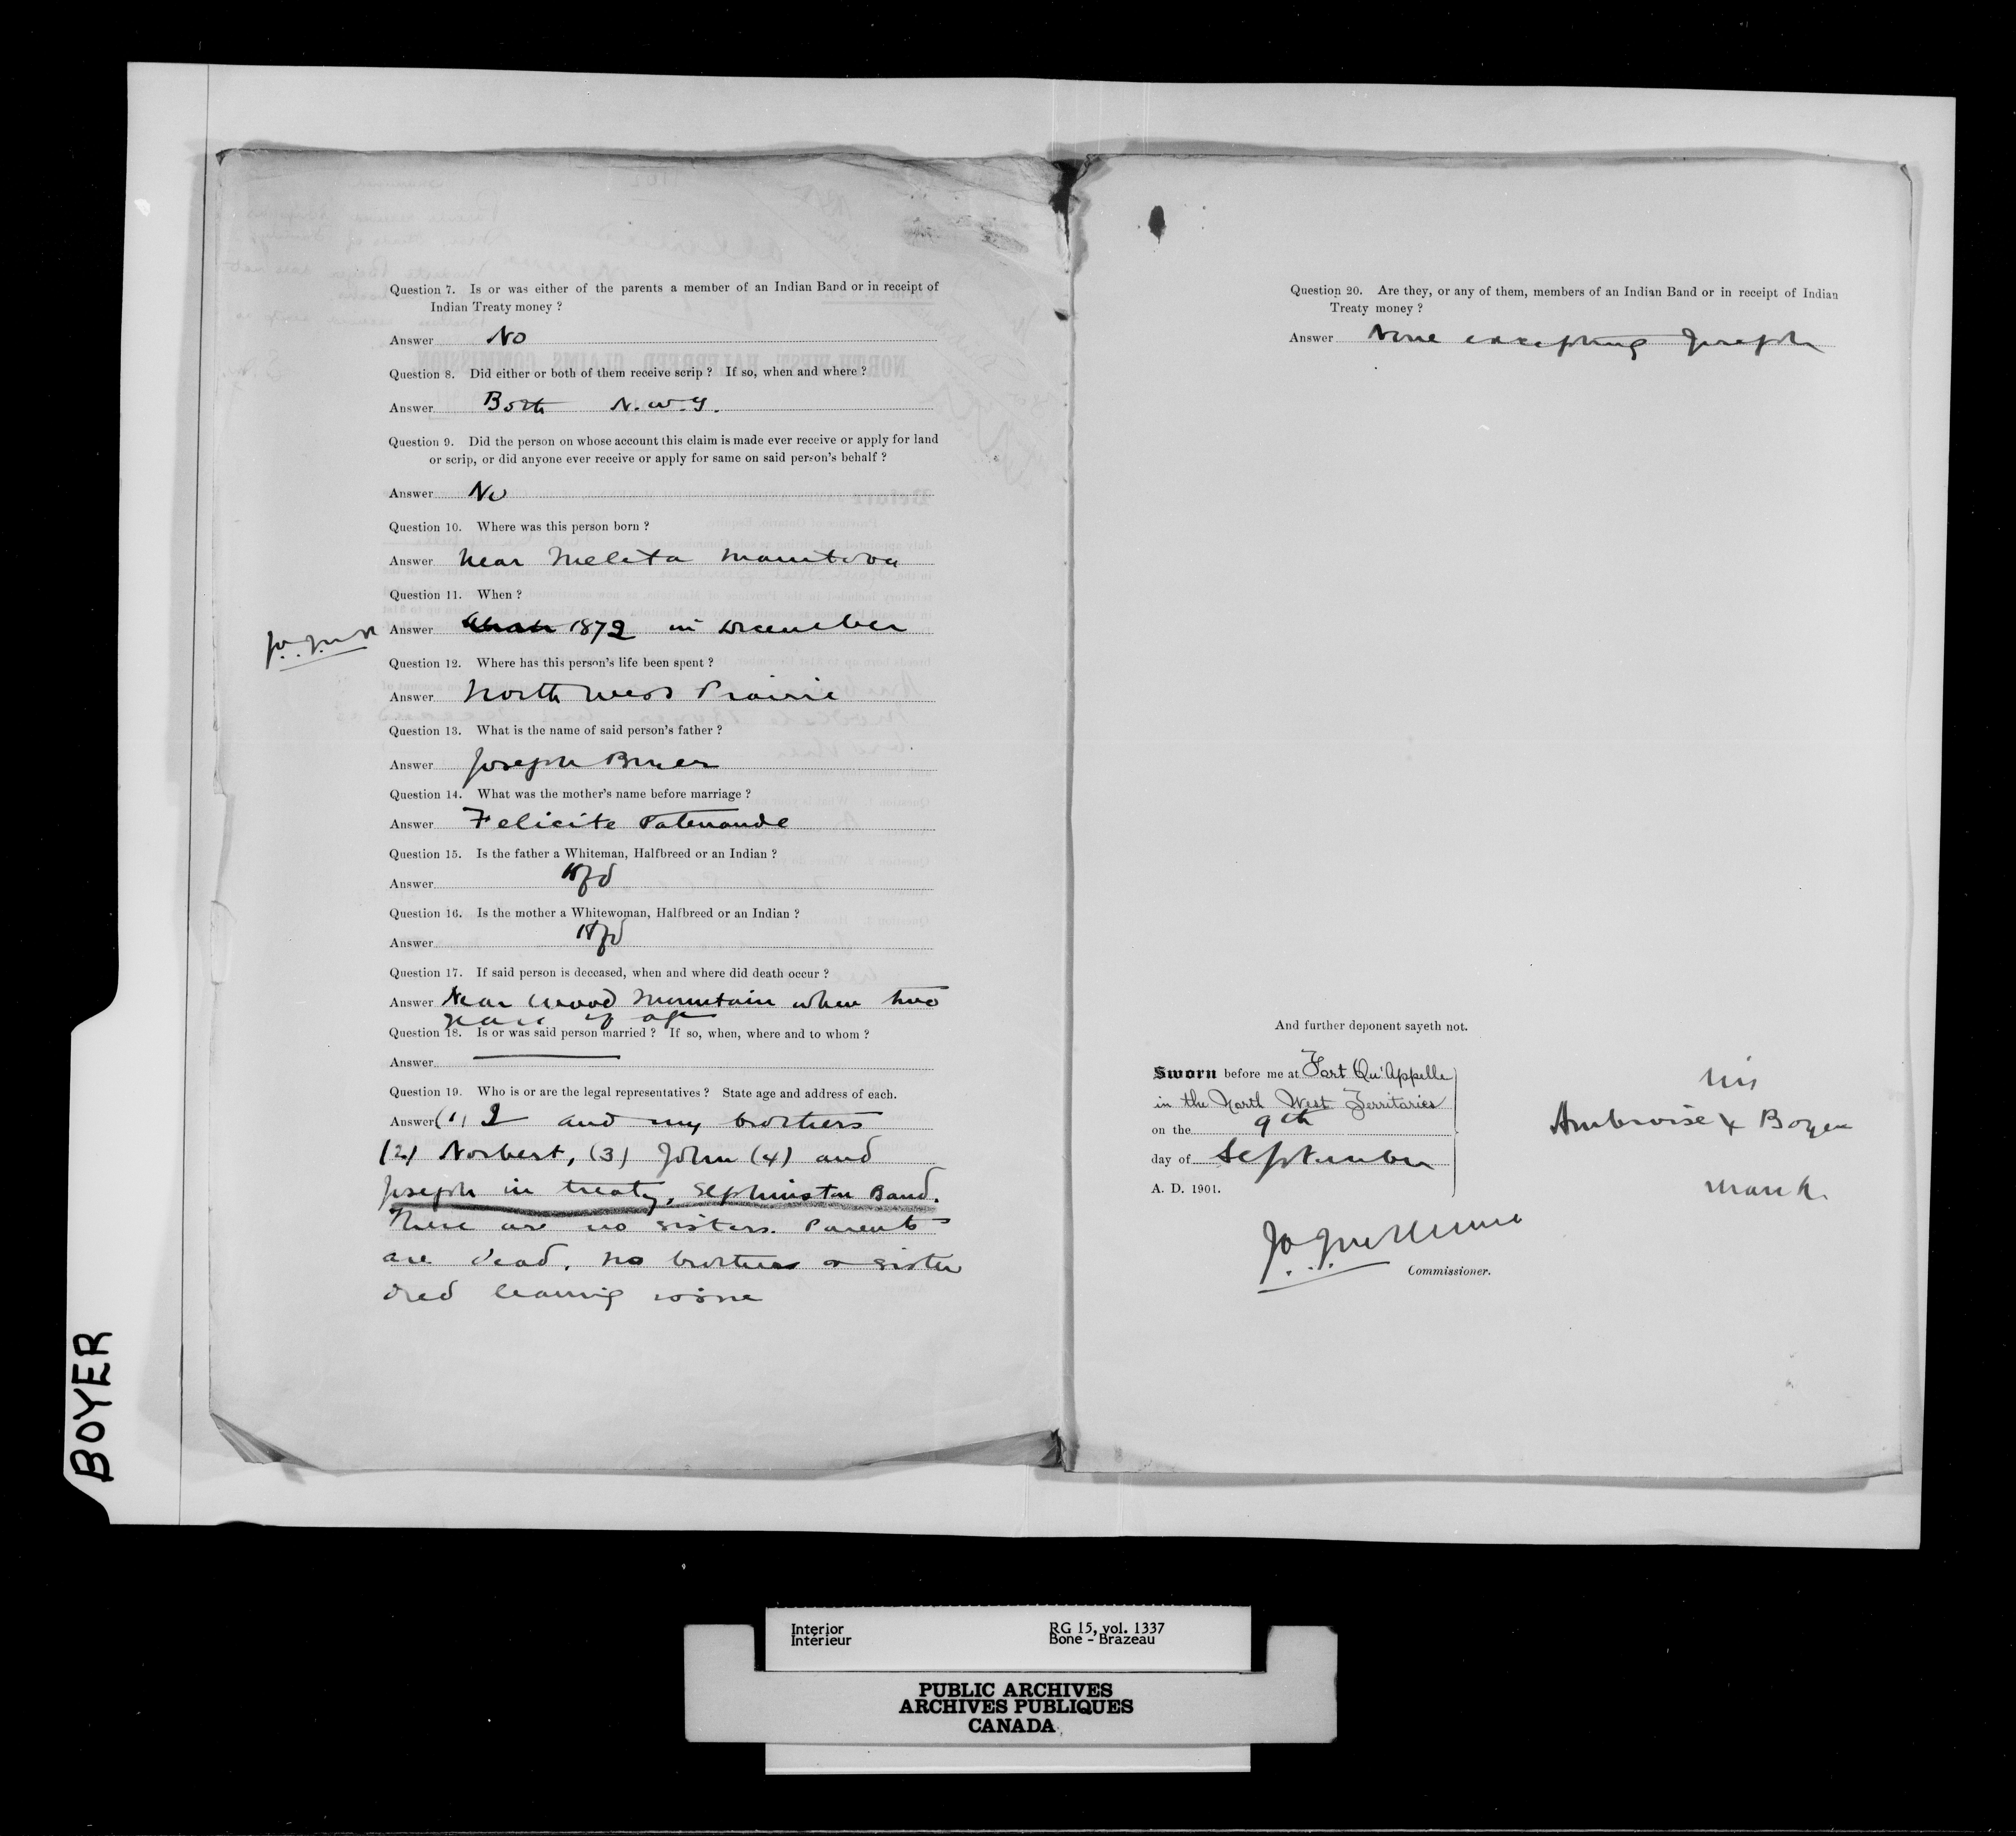 Question 7. Is or was either of the parents a member of an Indian Band or in receipt of
Indian Treaty money ?
Answer No
Question 8. Did either or both of them receive scrip ? If so, when and where ?
Answer Both N.W.T.
Question 9. Did the person on whose account this claim is made ever receive or apply for land
or scrip, or did anyone ever receive or apply for same on said person's behalf ?
Answer No
Question 10. Where was this person born ?
Answer Near Melita Manitoba
Question 11. When ?
Answer 1872 in December
Question 12. Where has this person's life been spent ?
Answer North West Prairie
Question 13. What is the name of said person's father ?
Answer Joseph Boyer
Question 14. What was the mother's name before marriage ?
Answer Felicite Patenaude
Question 15. Is the father a Whiteman, Halfbreed or an Indian ?
Answer Hfd
Question 16. Is the mother a Whitewoman, Halfbreed or an Indian ?
Answer Hfd
Question 17. If said person is deceased, when and where did death occur ?
Answer Near Wood Mountain when two
years of age
Question 18. Is or was said person married ? If so, when, where and to whom ?
Answer
Question 19. Who is or are the legal representatives ? State age and address of each.
Answer (1) I and my brothers
(2) Norbert, (3) John (4) and
Joseph in treaty, Elphinston Band.
There are no sisters. Parents
are dead. No brothers or sister
died leaving issue
Question 20. Are they, or any of them, members of an Indian Band or in receipt of Indian
Treaty money ?
Answer None excepting Joseph
And further deponent sayeth not.
Sworn before me at Fort Qu'Appelle
in the North West Territories
on the 9th
day of September
A. D. 1901.
his
Ambroise x Boyer
mark
Commissioner.
BOYER
Interior
Intérieur
RG 15, vol. 1337
Bone - Brazeau
PUBLIC ARCHIVES
ARCHIVES PUBLIQUES
CANADA